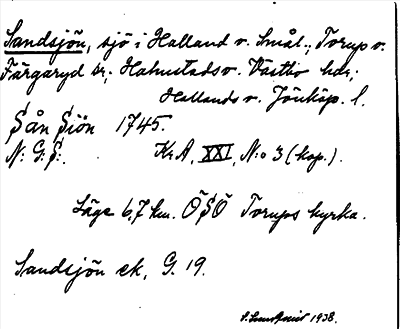 Sandsjön, sjö i Halland o. Smål.; Torup o.
Färgaryd sr.; Halmstads o. Västbo hdr;
Hallands o. Jönköp. l.
Sån Siön 1745.
N: G: S:. KrA, XXI, N:o 3 (kop.).
Läge 6,7 km. ÖSÖ Torups kyrka.
Sandsjön ek, G. 19.
S. Lundquist 1938.